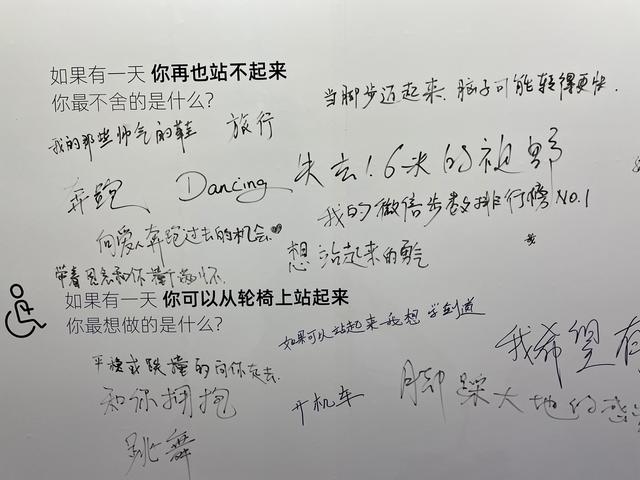 如果有一天 你再也站不起来
你最不舍的是什么?
当脚步迈起来.脑子可能转得更快.
我的那些帅气的鞋
旅行
奔跑
Dancing
失去1.6米的视野
我的微信步数排行榜NO.1
向爱人奔跑过去的机会
想
站起来的勇气
如果有一天 你可以从轮椅上站起来
你最想做的是什么?
如果可以站起来 我想 学剑道
我希望有
平稳或跌撞的向你奔去.
和你拥抱
开机车
脚踩大地的感
跳舞